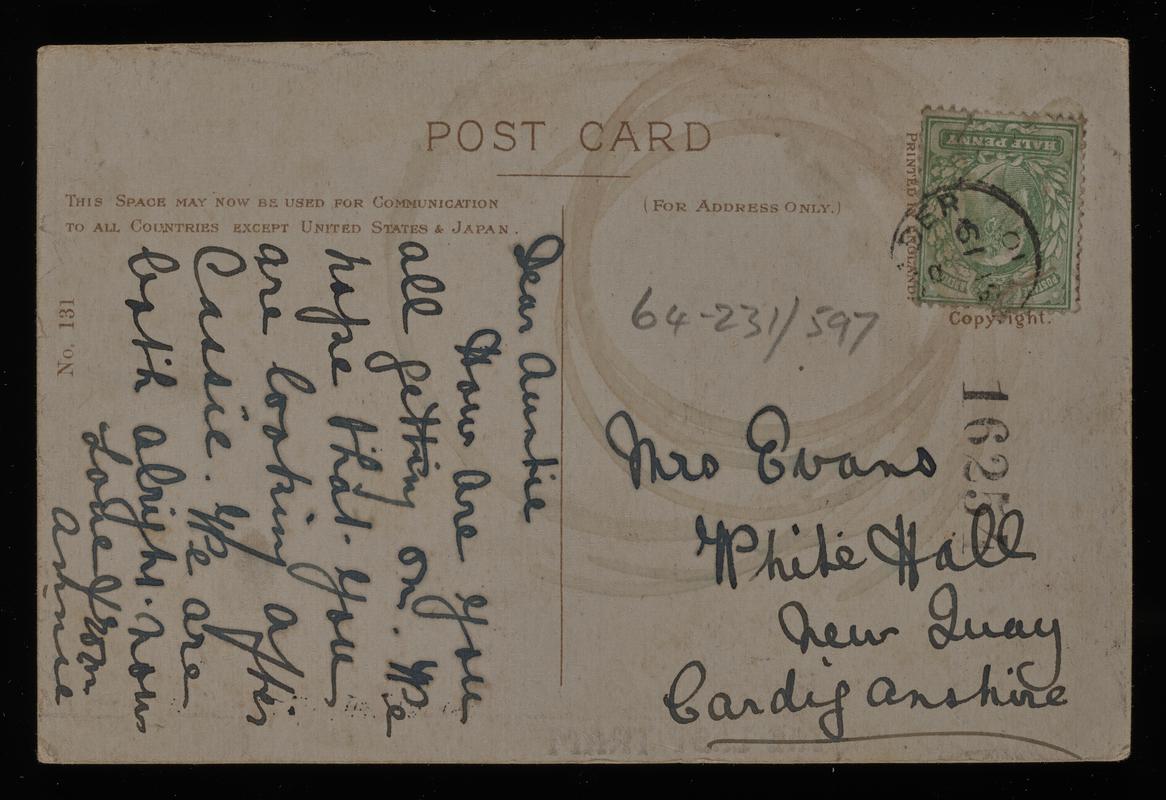 POST CARD
THIS SPACE MAY NOW BE USED FOR COMMUNICATION
TO ALL COUNTRIES EXCEPT UNITED STATES & JAPAN.
(FOR ADDRESS ONLY.)
PRINTED IN ENGLAND
HALF PENNY
POSTAGE
DER
19
10
Copyright.
No. 131
64-231/597
1625
Dear Auntie
How are you
all getting on. We
hope that you
are looking after
Cassie. We are
both alright now
Love from
Mrs Evans
White Hall
New Quay
Cardiganshire